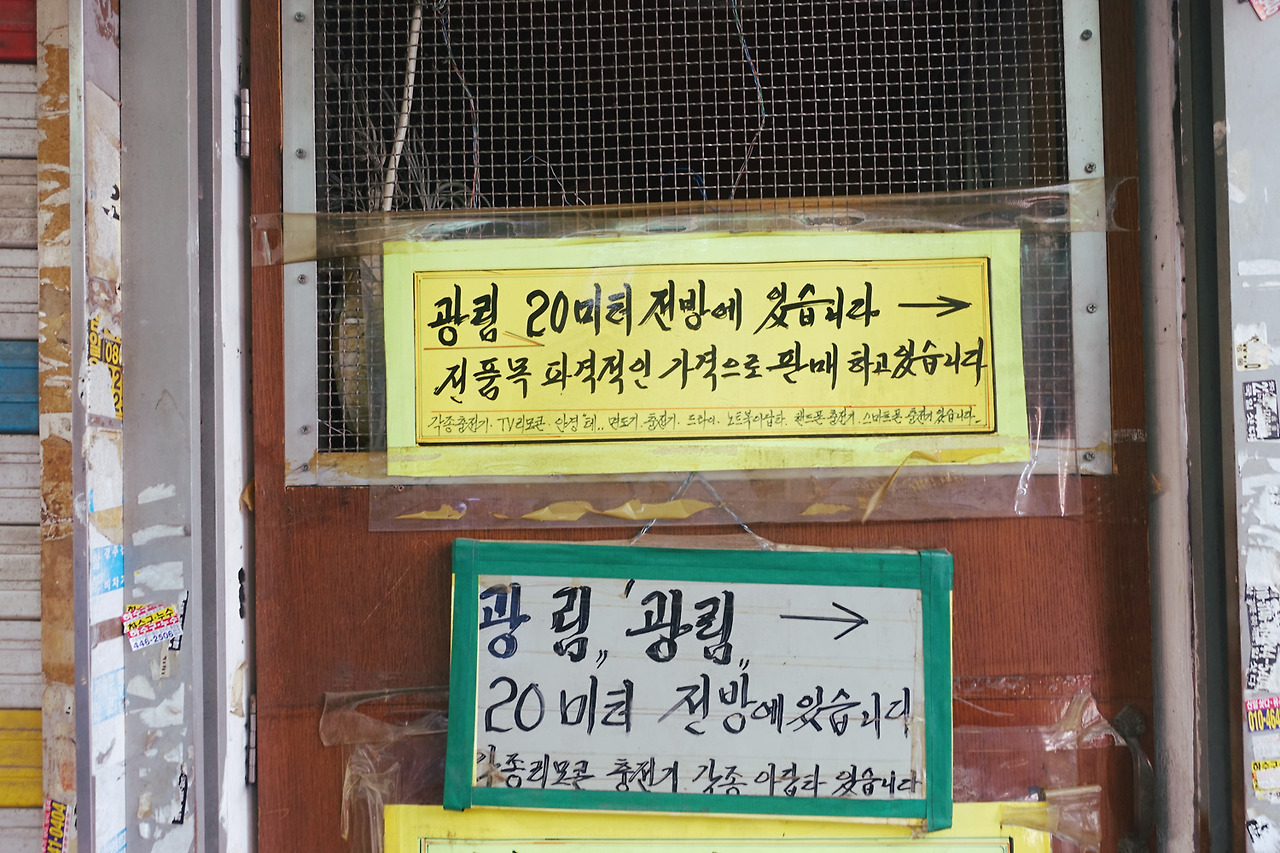 광림 20미터 전방에 있습니다 →
전품목 파격적인 가격으로 판매 하고있습니다
각종충전기. TV리모콘. 안경테.. 면도기.충전기. 드라이. 노트북아답타. 핸드폰충전기.스마트폰.충전기있습니다.
광림,, 광림,, →
20미터 전방에있습니다
각종리모콘 충전기 각종 아답타 있습니다
하수구·누수
445-2506